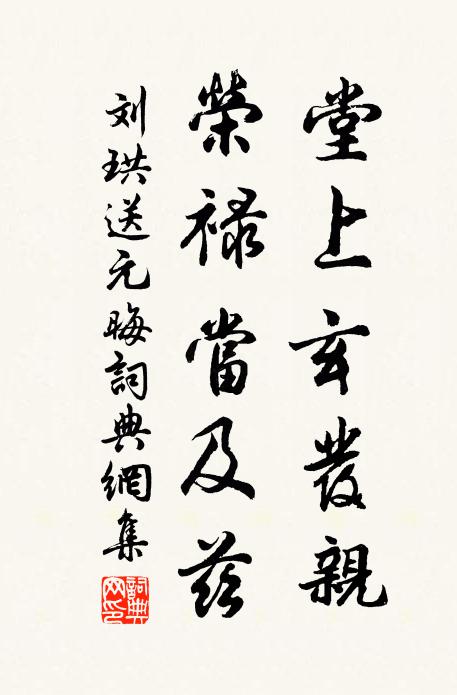 堂上玄发親
榮禄當及兹
刘珙送元晦詞典網集
詞典網印